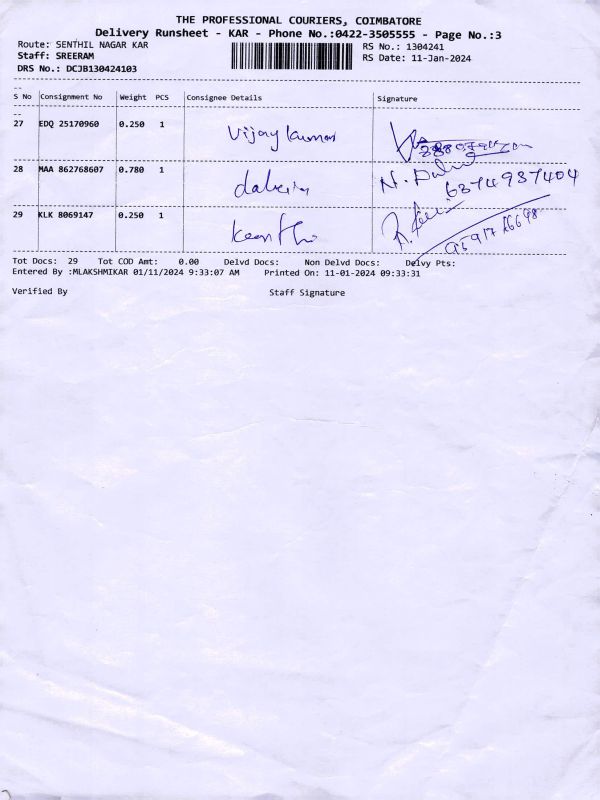 THE PROFESSIONAL COURIERS, COIMBATORE
Delivery Runsheet - KAR - Phone No.:0422-3505555 - Page No.:3
Route: SENTHIL NAGAR KAR
RS No.: 1304241
Staff: SREERAM
RS Date: 11-Jan-2024
DRS No.: DCJB130424103
S No Consignment No Weight PCS Consignee Details Signature
27 EDQ 25170960 0.250 1 Vijay kumar
28 MAA 862768607 0.780 1 6374937404
29 KLK 8069147 0.250 1
Tot Docs: 29 Tot COD Amt: 0.00 Delvd Docs: Non Delvd Docs: Delvy Pts:
Entered By :MLAKSHMIKAR 01/11/2024 9:33:07 AM Printed On: 11-01-2024 09:33:31
Verified By Staff Signature